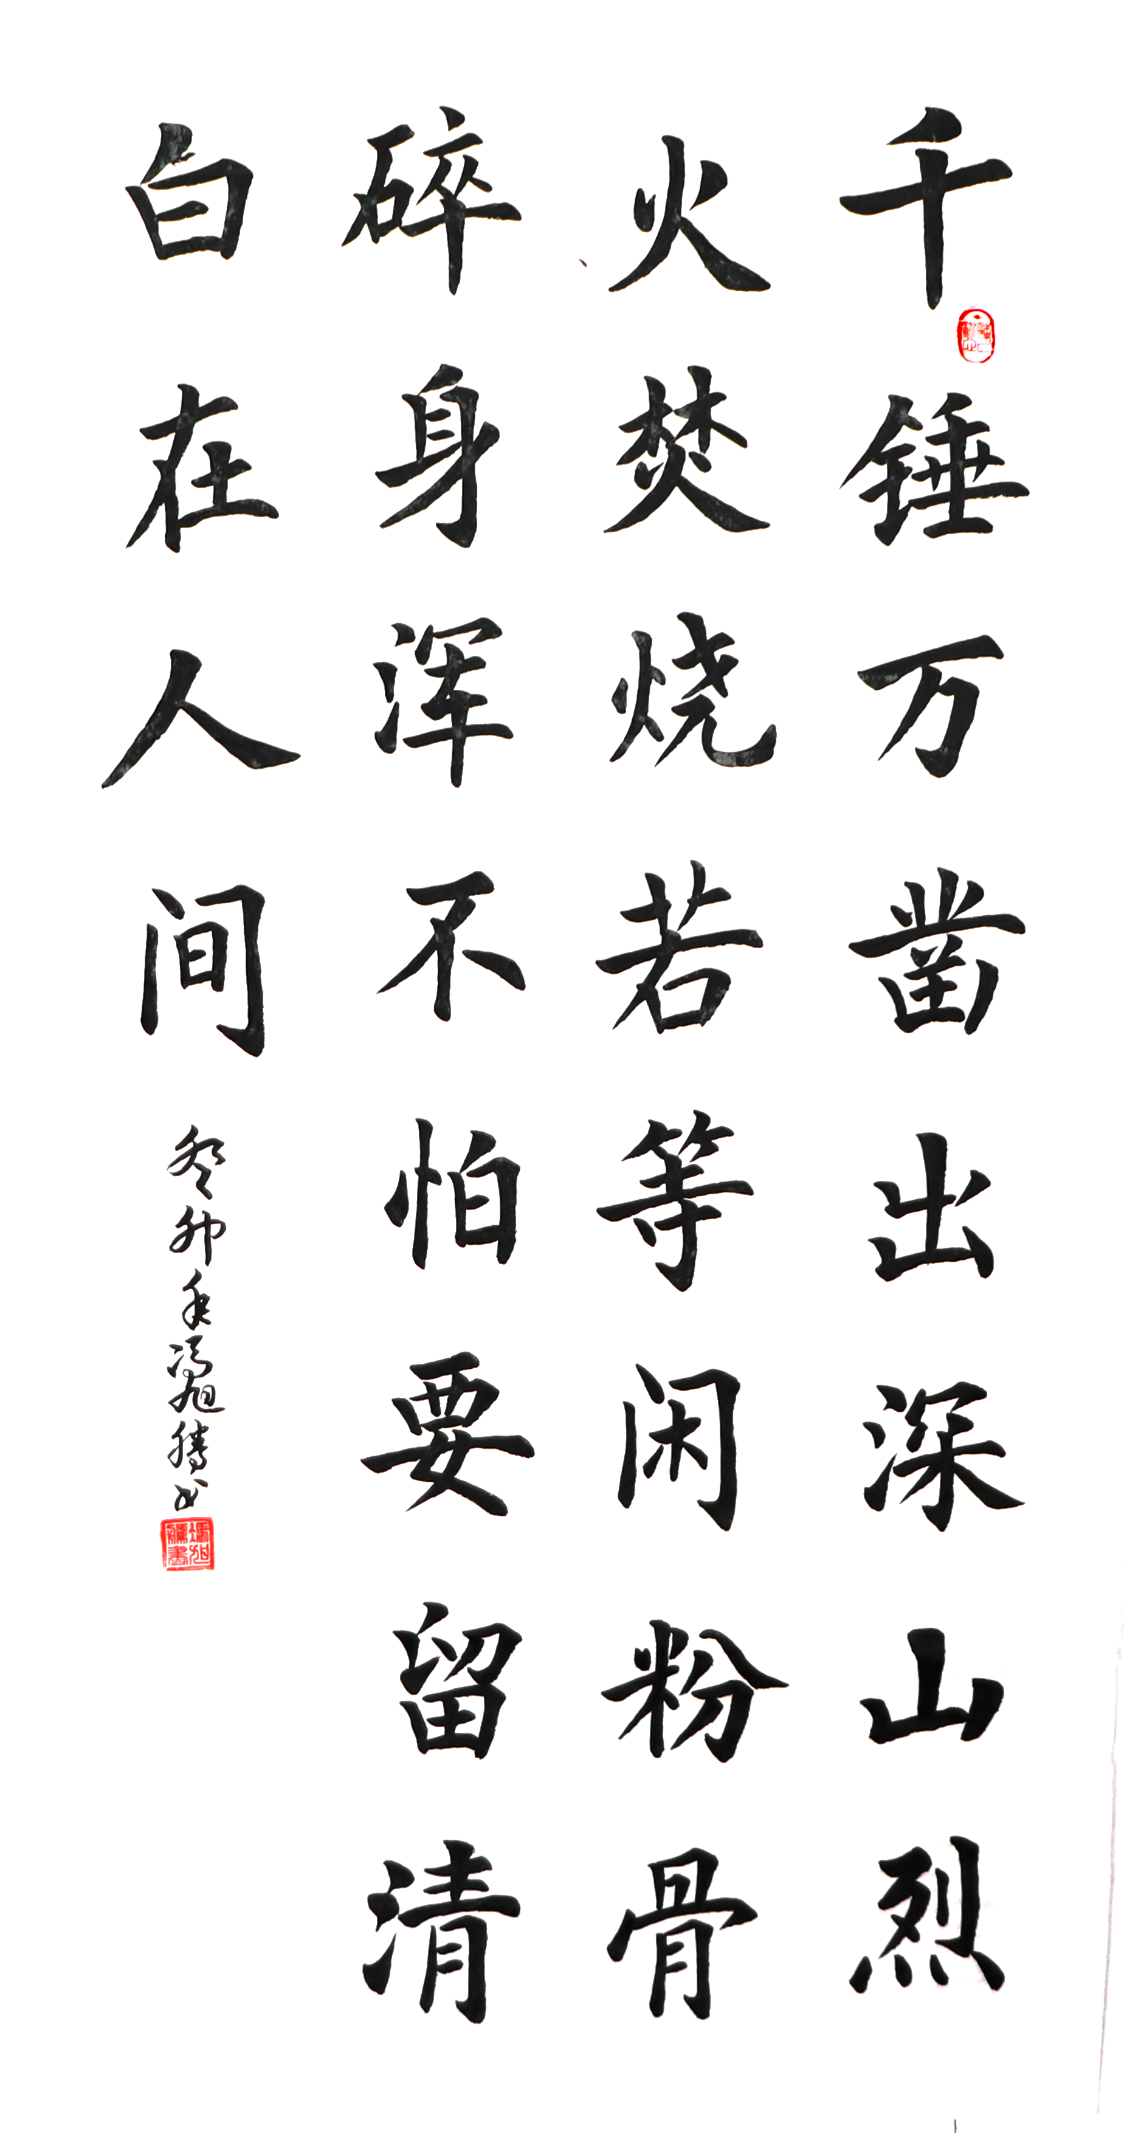 千锤万凿出深山烈
火焚烧若等闲粉骨
碎身浑不怕要留清
白在人间
癸卯年冯旭腾书